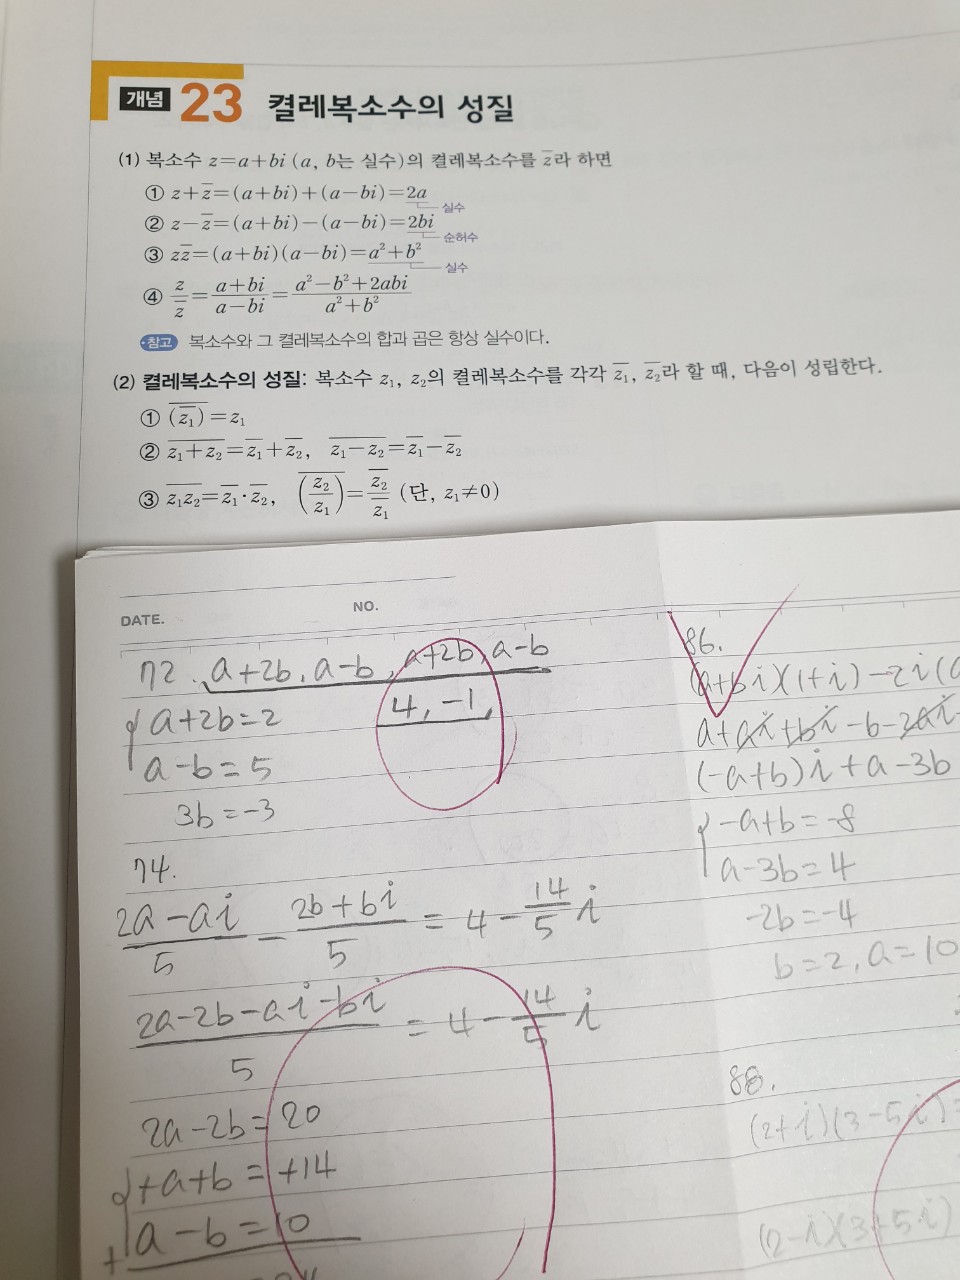 개념 23 켤레복소수의 성질
(1) 복소수 z=a+bi (a, b는 실수)의 켤레복소수를 z̅라 하면
① z+z̅=(a+bi)+(a-bi)=2a
실수
② z-z̅=(a+bi)-(a-bi)=2bi
순허수
③ zz̅=(a+bi)(a-bi)=a²+b²
실수
④ z/z̅=(a+bi)/(a-bi)=(a²-b²+2abi)/(a²+b²)
참고 복소수와 그 켤레복소수의 합과 곱은 항상 실수이다.
(2) 켤레복소수의 성질: 복소수 z₁, z₂의 켤레복소수를 각각 z̅₁, z̅₂라 할 때, 다음이 성립한다.
① \overline{(\overline{z₁})}=z₁
② \overline{z₁+z₂}=\overline{z₁}+\overline{z₂}, \overline{z₁-z₂}=\overline{z₁}-\overline{z₂}
③ \overline{z₁z₂}=\overline{z₁}·\overline{z₂}, \overline{(z₂/z₁)}=\overline{z₂}/\overline{z₁} (단, z₁≠0)
DATE. NO.
72. a+2b, a-b, a+2b, a-b
4, -1,
a+2b=2
a-b=5
3b=-3
74.
(2a-ai)/5 - (2b+bi)/5 = 4-14/5 i
(2a-2b-ai-bi)/5 = 4-14/5 i
2a-2b=20
+a+b=+14
a-b=10
+
86.
(a+bi)(1+i)-2i(
a+ai+bi-b-2ai
(-a+b)i+a-3b
-a+b=-8
a-3b=4
-2b=-4
b=2, a=10
88.
(2+i)(3-5i)=
(2-i)(3+5i)